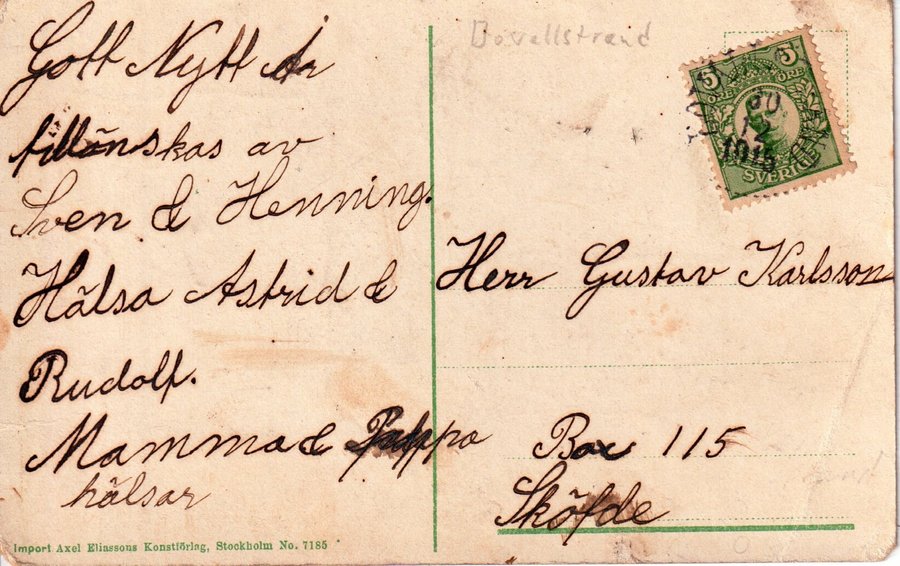 Gott Nytt År
tillönskas av
Sven & Henning.
Hälsa Astrid &
Rudolf.
Mamma & Pappa
hälsar
Import Axel Eliassons Konstförlag, Stockholm No. 7185
5 5
ÖRE
30
12
1915
SVERIGE
Herr Gustav Karlsson
Box 115
Sköfde